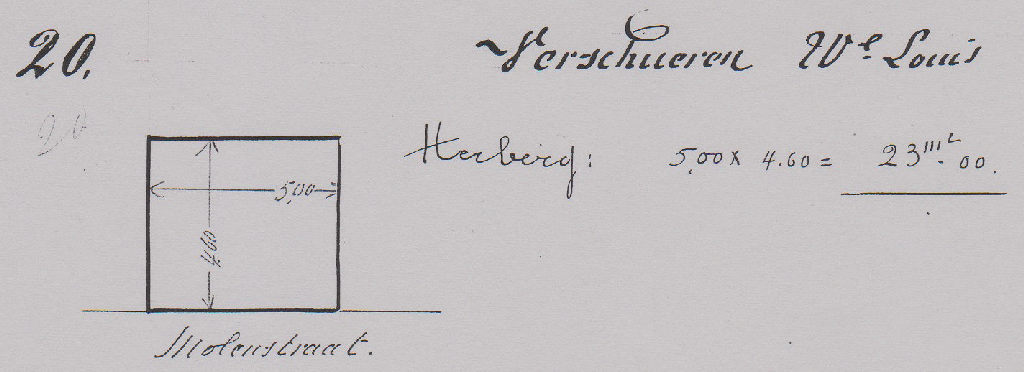 20.
Verschueren We. Louis
20
Herberg: 5,00 x 4.60 = 23m².00.
5,00
4,60
Molenstraat.